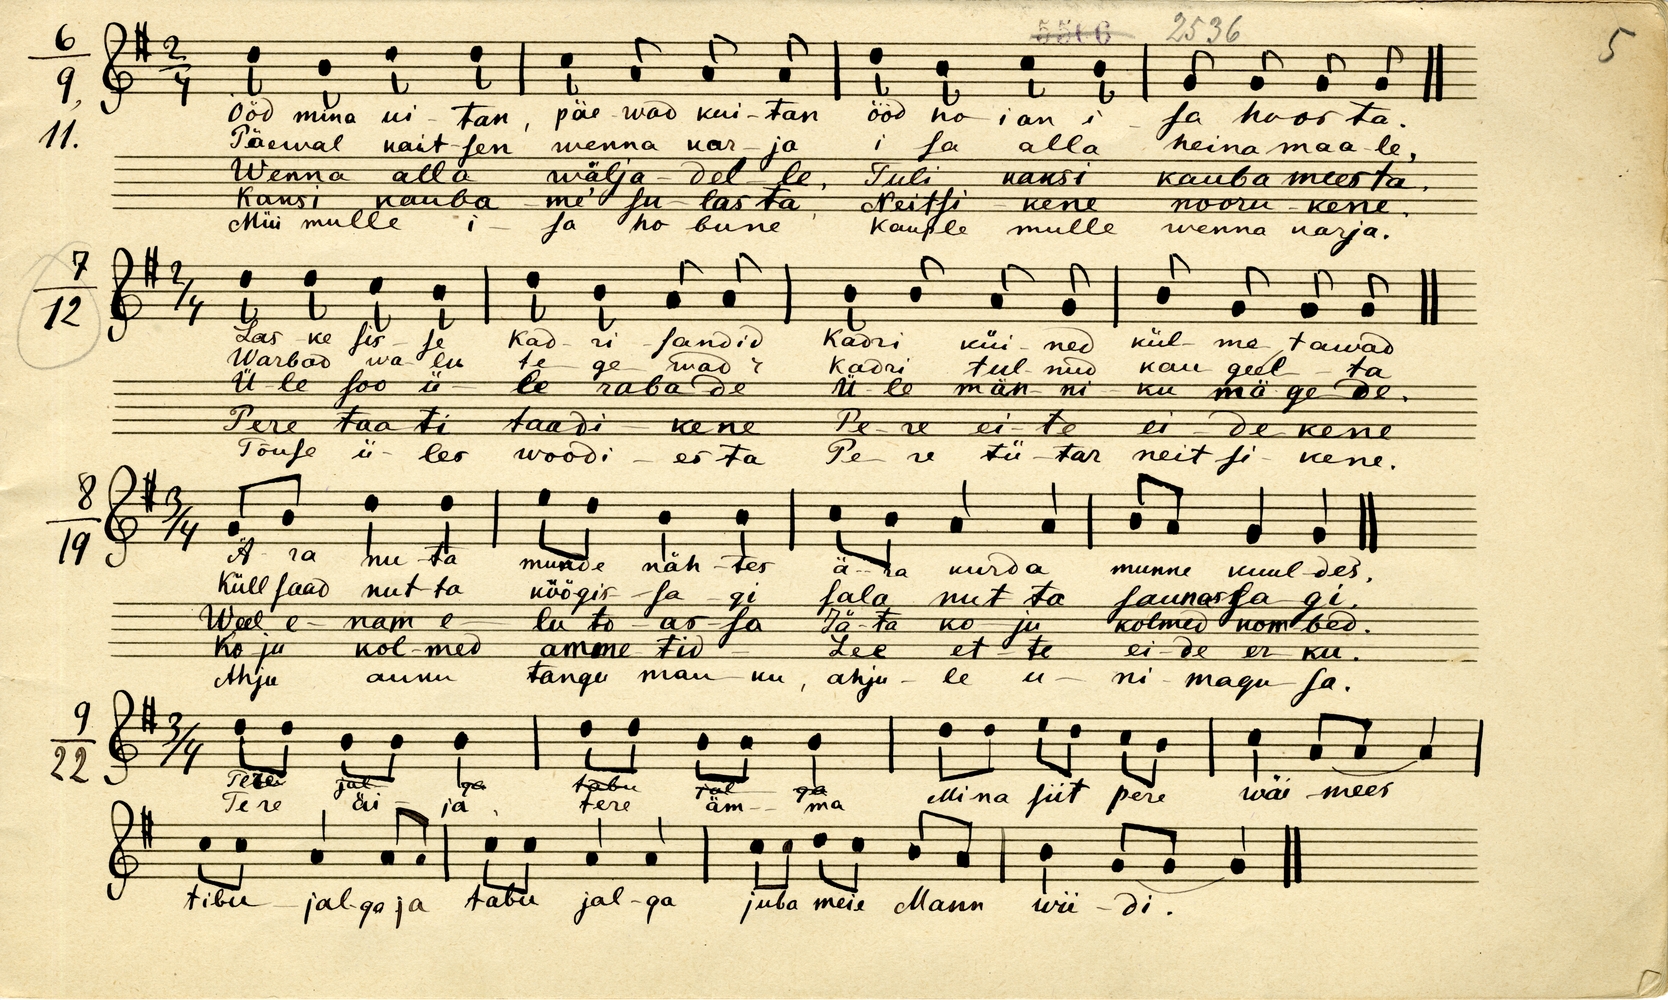 5566 2536 5
6
9, 2/4
11.
Ööd mina ui-tan, päe-wad kui-tan ööd ho-ian i-sa hoos-ta.
Päewal nait-sen wenna kar-ja i sa alla heina maa-le,
Wenna alla wälja-del-le, Tuli kaksi kauba meesta.
Kaksi kauba-me' su-lasta, Neitsi-kene nooru-kene.
Müi mulle i-sa ho bune Kauple mulle wenna karja.
7
12 2/4
Las-ke sis-se Kad-ri-sandid Kadri küi-ned kül-me-tawad
Warbad wa-lu te-ge-wad? Kadri tul-nud kau geel-ta
Ü-le soo ü-le raba de Ü-le män-ni-ku mä ge de.
Pere taa ti taadi-kene Pe-re ei-te ei-de kene
Tõuse ü-les woodi-es-ta Pe-re tü-tar neit si-kene.
8
19 3/4
Ä-ra nu-ta munde näh-tes ä-ra kurda munne kuul-des,
Küll saad nut-ta köögis-sa-gi sala nut ta saunas sa-gi.
Weel e-nam e-lu to-as-sa Jä-ta ko-ju kolmed kom bed.
Ko ju kol-med amme tid- Lee et-te ei-de er ku.
Ahju auku tangu mau-ku, ahju-le u-ni-magu-sa.
9
22 3/4
Tere jal ga tabu jal-ga
Te re äi-ja, tere äm-ma Mina siit pere wäi-mees
tibu-jal-ga ja tabu jal-ga juba meie Mann wii-di.